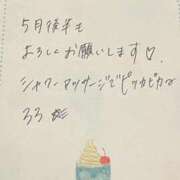 5月後半も
よろしくお願いします♡.
シャワーマッサージでピッカピカで